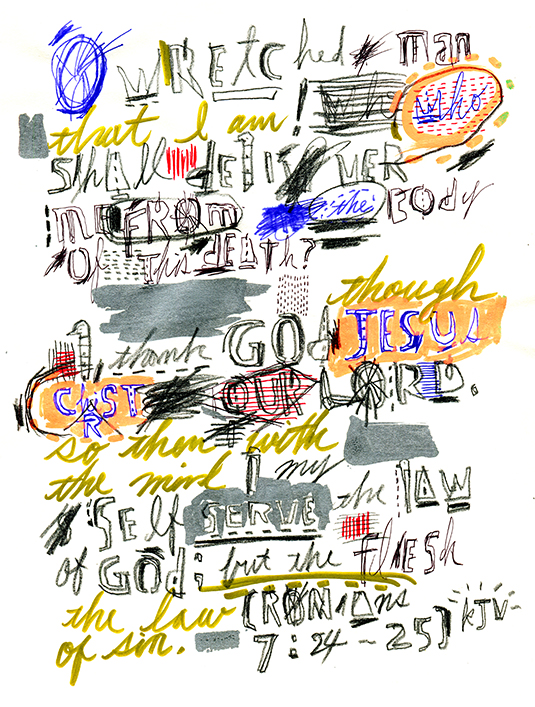 O WRETChed man
that I am! who who
Shall deliVER
me FROM the BODY
Of This dEATh?
though
I, thank GOD JESUS
CHRIST OUR LORD.
so then with
the mind I my
Self SERVE the LAW
of GOD; but the FlESh
the law (ROMANS
of sin. 7:24-25) KJV